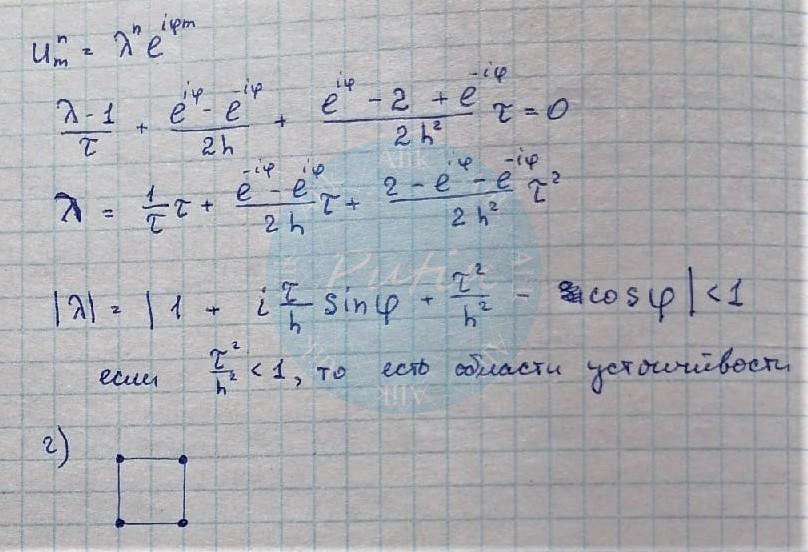 uₘⁿ = λⁿ e^{iφm}
(λ - 1)/τ + (e^{iφ} - e^{-iφ})/(2h) + (e^{iφ} - 2 + e^{-iφ})/(2h²) τ = 0
λ = (1/τ) τ + (e^{-iφ} - e^{iφ})/(2h) τ + (2 - e^{iφ} - e^{-iφ})/(2h²) τ²
|λ| = |1 + i (τ/h) sinφ + τ²/h² - cosφ| < 1
если τ²/h² < 1, то есть области устойчивости
г)